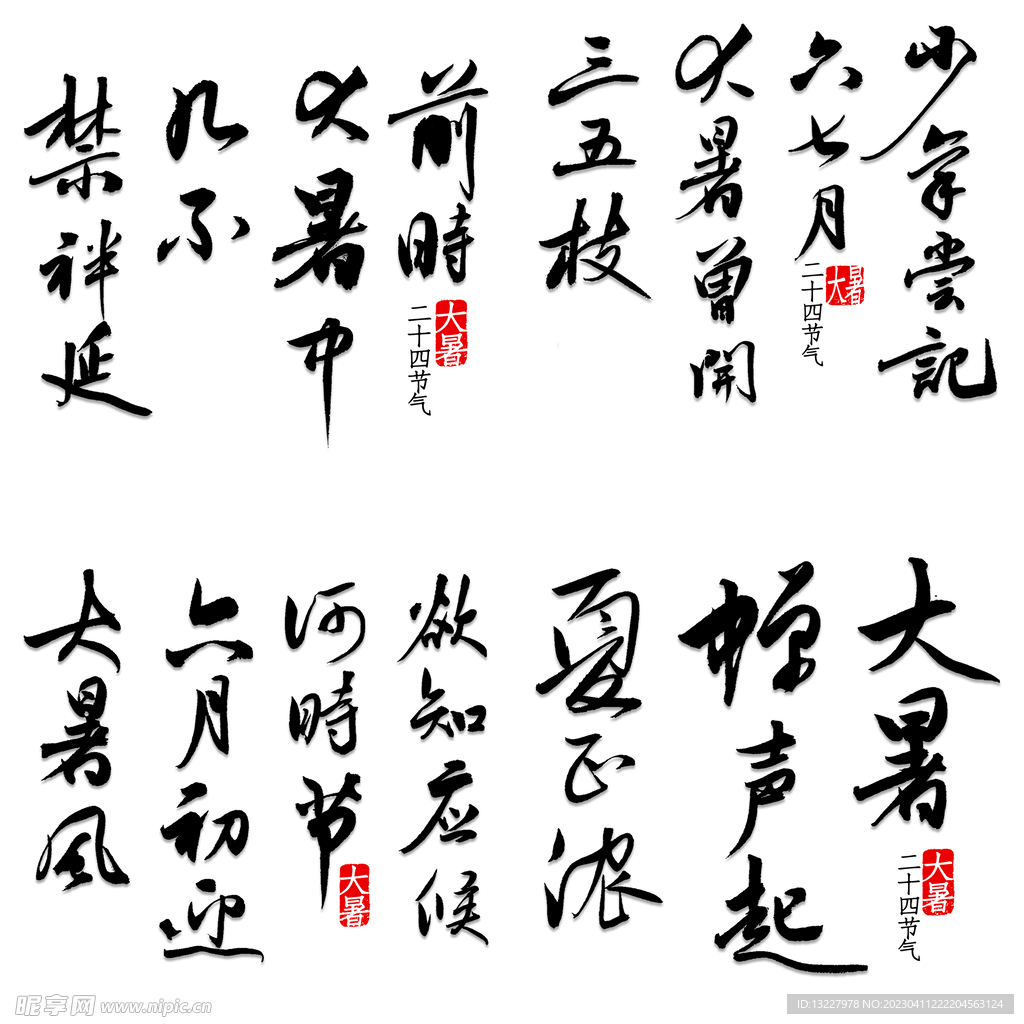 前時
大暑中
几不
禁袢延
大暑
二十四节气
少年尝記
六七月
大暑曾開
三五枝
大暑
二十四节气
欲知应候
何時节
六月初迎
大暑風
大暑
大暑
蝉声起
夏正浓
大暑
二十四节气
昵享网 www.nipic.cn
ID:13227978 NO:20230411222204563124